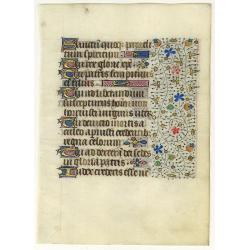 Sanctum quoq paracli
tum spiritum
Tu rex glorie xpe
Tu patris sempiternus
es filius
Tu ad liberandum
suscepturus hominem non
horruisti virginis uterum
Tu devicto mortis a
culeo aperuisti credentibus
regna celorum
Tu ad dexteram dei sedes
in gloria patris
Iudex crederis esse